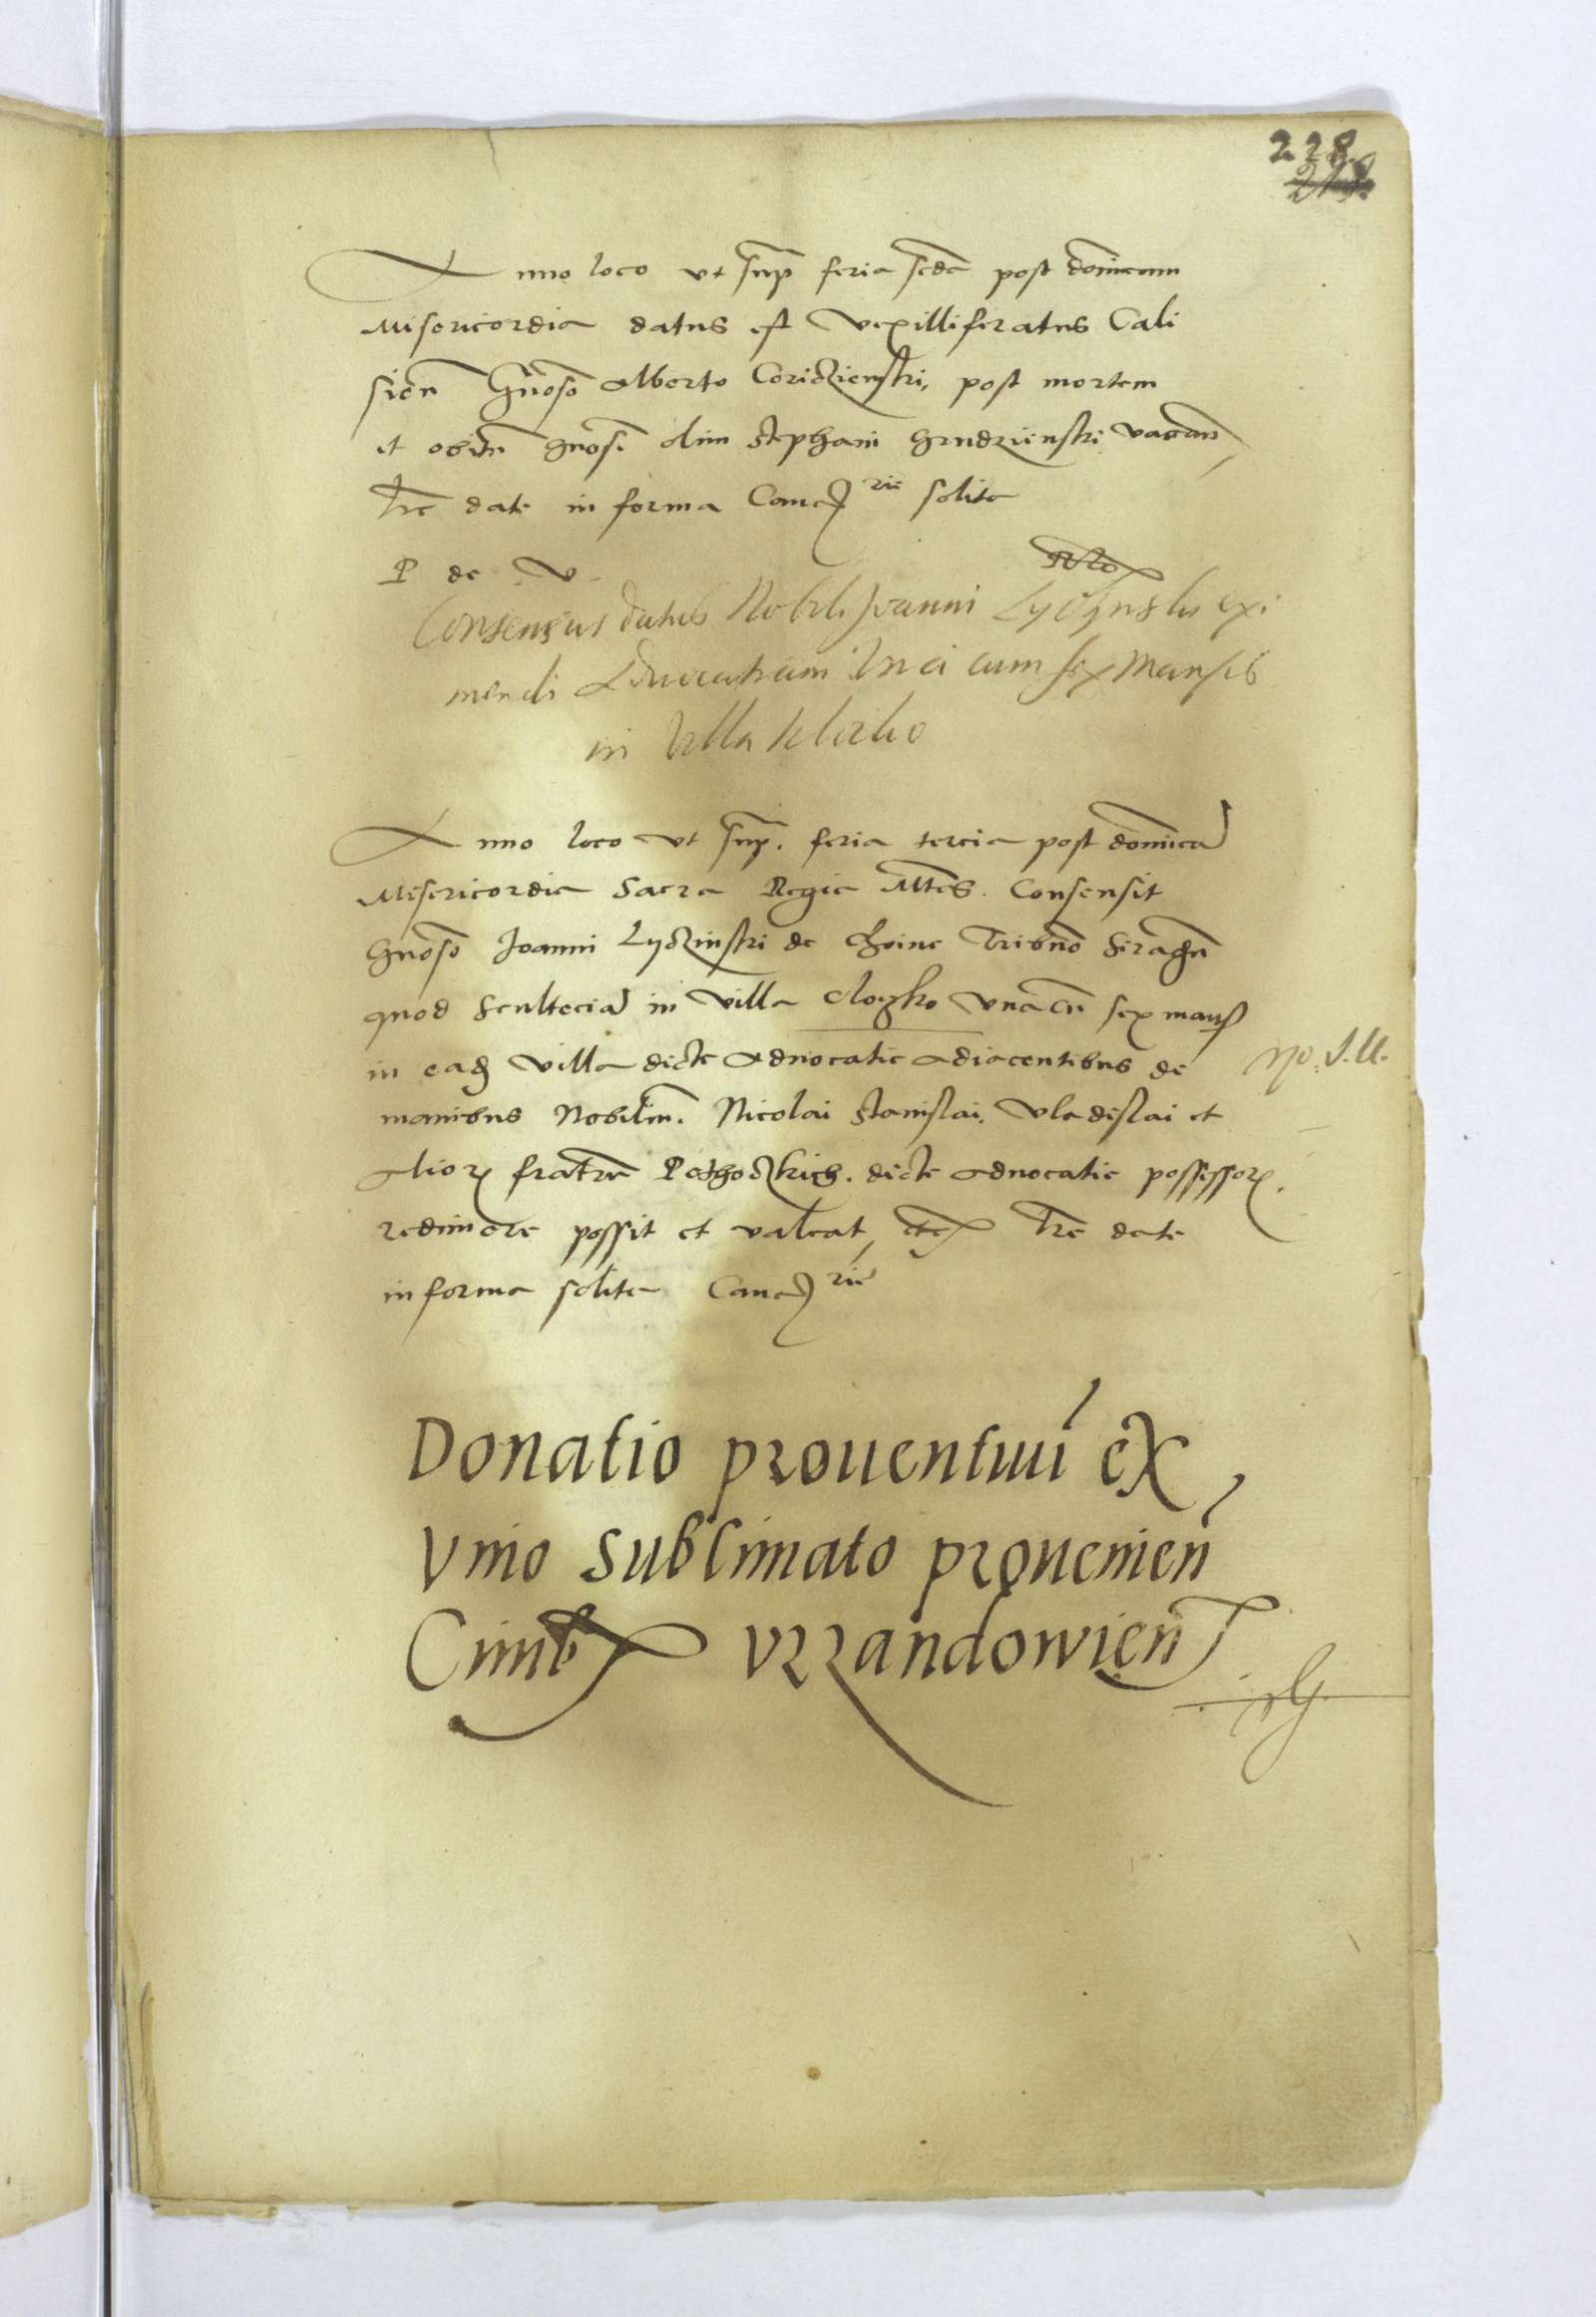 228.
Anno loco vt sup feria scda post dominicam
Misericordia datus est Vexilliferatus Cali
sien Gnoso Alberto post mortem
et obitu gnosi olim Stephani Grudzienski vacan
lre date in forma Canc rie solita
P de V
Consensus datus Nobili Joanni exi
mendi Aduocatiam cum sex Mansis
in villa
Anno loco vt sup. feria tercia post dominica
Misericordie Sacra Regia Mtas. Consensit
Gnoso Joanni Lydzinski de Tribuno Siradien
quod Scultecia in villa Clogko vnacu sex mans
in ead villa dicte aduocatie adiacentibus de
manibus Nobiliu. Nicolai Stanislai, Vladislai et
alior fratru dicte aduocatie possessor.
redimere possit et valeat, etc lre date
in forma solita Canc rie
Donatio prouentuu ex
Vino sublimato prouenien
Ciuib Vrzandowien